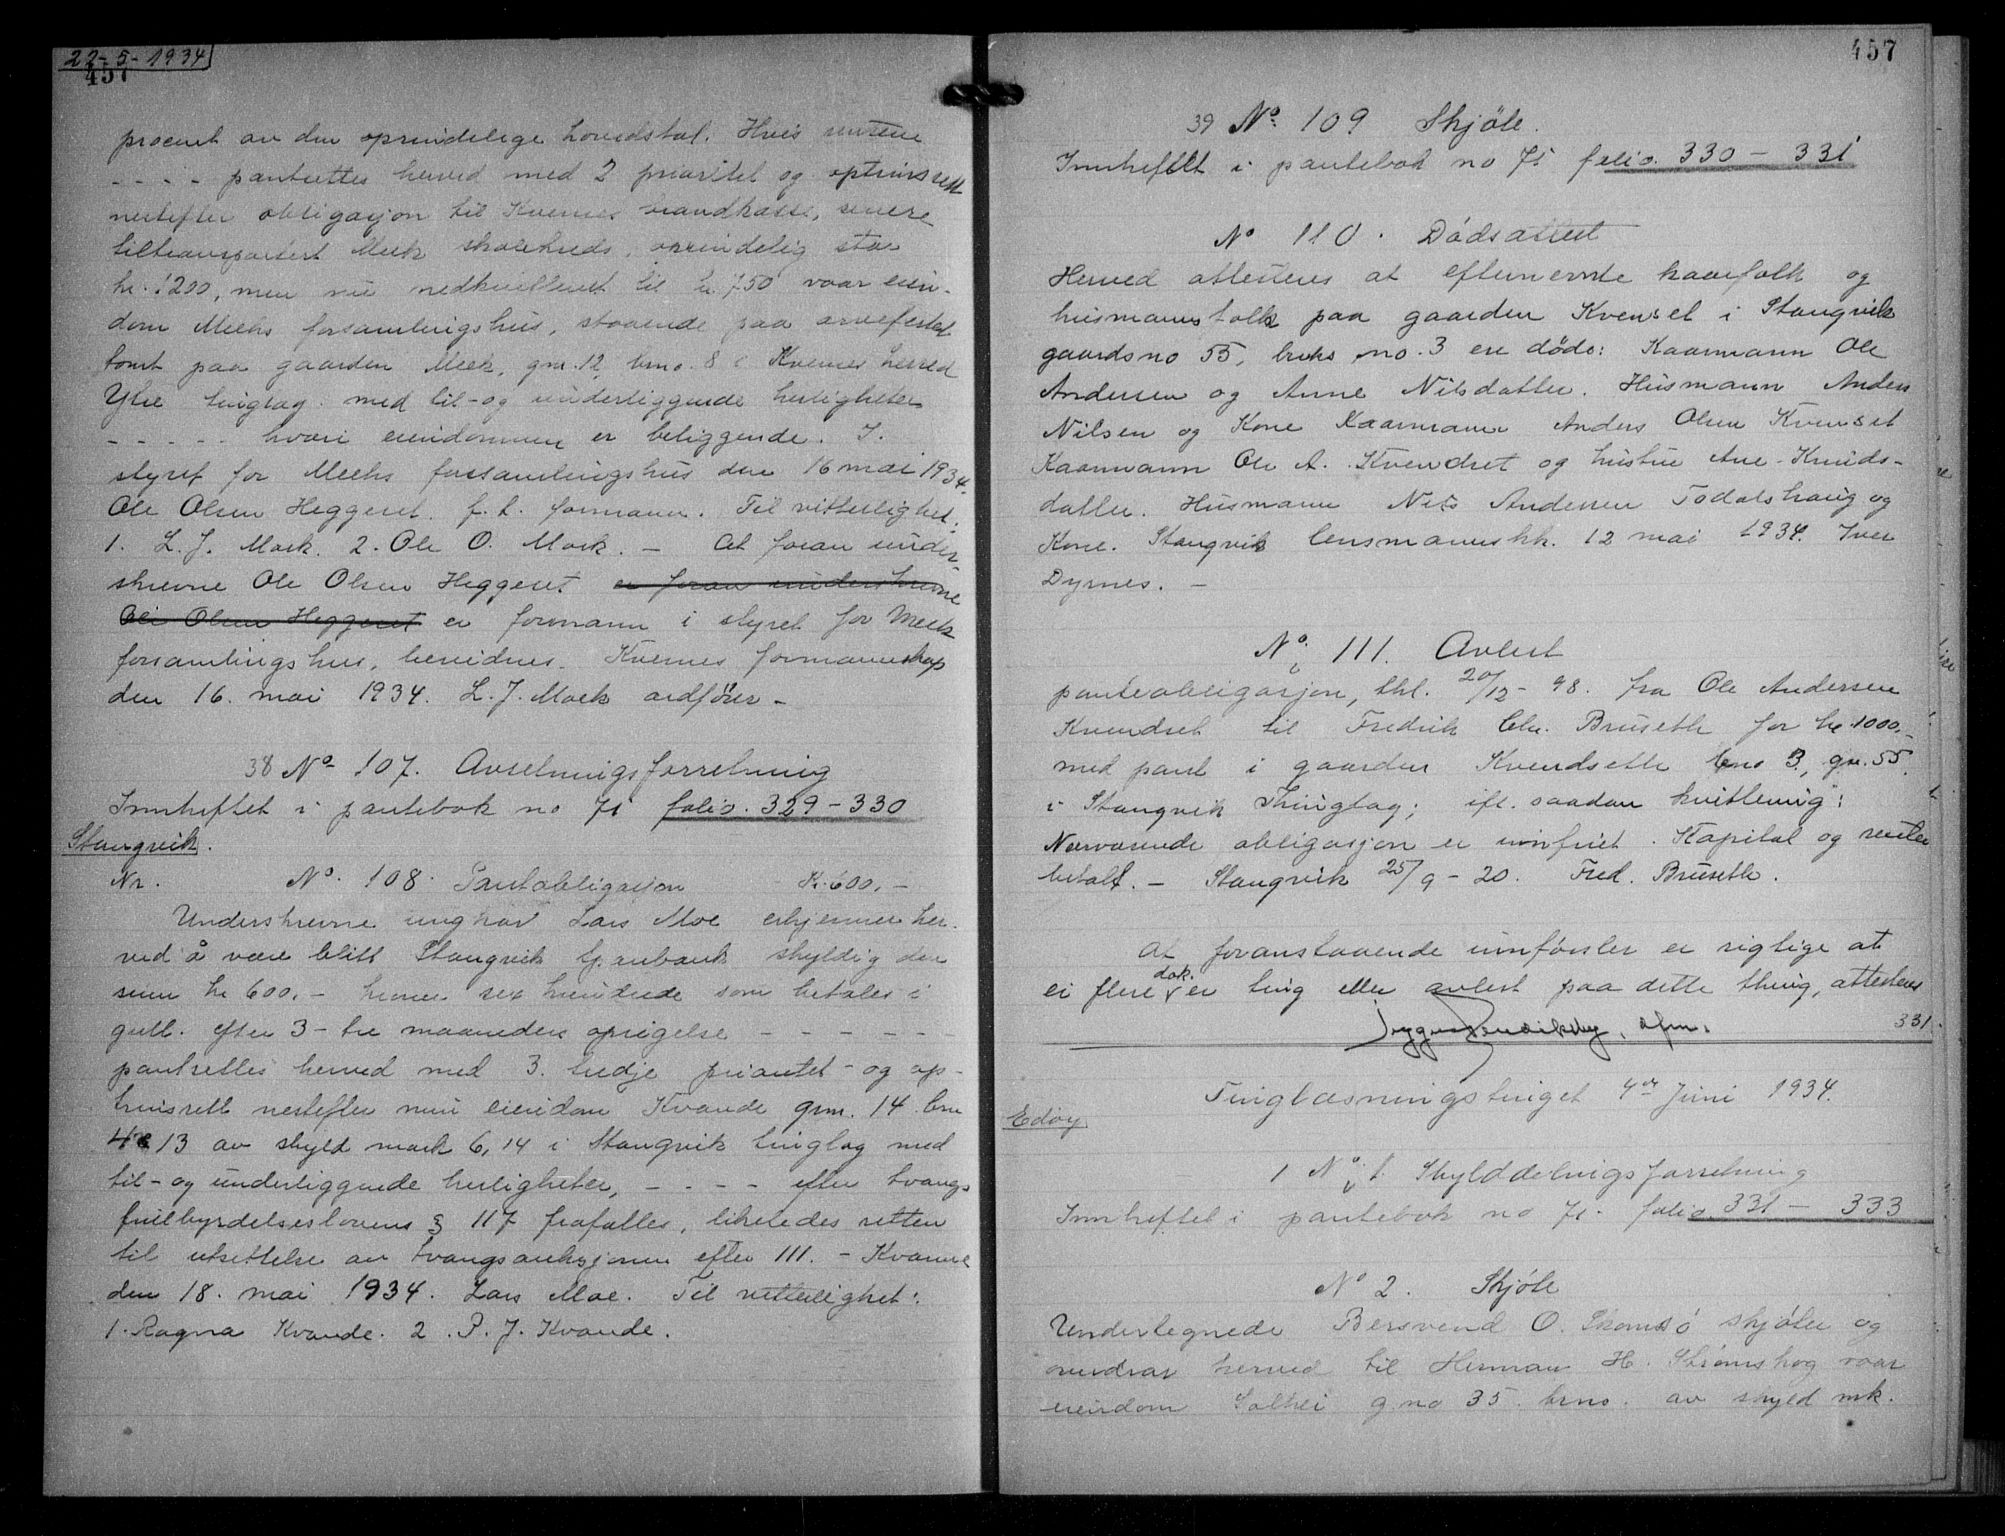 22-5-1934
457
procent av den oprindelige hovedstol. Hvis rentene
- - - - pantsettes herved med 2 prioritet og optrinsrett
nestefter obligasjon til Kvernes brandkasse, senere
tiltransportert Meek skolekreds, oprindelig stor
kr. 1200, men nu nedkvitteret til kr 750 vaar eien-
dom Meeks forsamlingshus, staaende paa arvefestet
tomt paa gaarden Meek, gnr. 12, brno. 8 i Kvernes herred
Ytre tinglag med til- og underliggende herligheter
- - - - - hvori eiendommen er beliggende. I
styret for Meeks forsamlingshus den 16 mai 1934.
Ole Olsen Heggeset. f. t. formann. Til vitterlighet:
1. L. J. Moek. 2. Ole O. Moek. - At foran under-
skrevne Ole Olsen Heggeset er foran underskrevne
Ole Olsen Heggeset er formann i styret for Meek
forsamlingshus, bevidnes. Kvernes formannskap
den 16. mai 1934. L. J. Moek ordfører -
38 No 107. Avsetningsforretning
Innheftet i pantebok no 71 folio. 329-330
Stangvik.
Nr. No. 108. Pantobligasjon Kr. 600.-
Underskrevne ungkar Lars Moe erkjenner her-
ved å være blitt Stangvik Sparebank skyldig den
sum kr 600.- kroner sex hundrede som betales i
gull. efter 3- tre maaneders opsigelse - - - - - -
pantsettes herved med 3. tredje prioritet- og op-
trinsrett nestefter min eiendom Kvande gnr. 14 bnr
13 av skyld mark 6,14 i Stangvik tinglag med
til- og underliggende herligheter, - - - - efter tvangs
fullbyrdelseslovens § 117 frafalles, likeledes retten
til utsettelse av tvangsauksjonen efter 111. - Kvanne
den 18. mai 1934. Lars Moe. Til vitterlighet:
1. Ragna Kvande. 2. P. J. Kvande.
457
39 No. 109 Skjöte.
Innheftet i pantebok no 71 folio. 330 - 331
No 110. Dödsattest
Herved attesteres at efternevnte kaarfolk og
husmannsfolk paa gaarden Kvenset i Stangvik
gaardsno 55, bruks no. 3 er døde: Kaarmann Ole
Andersen og Anne Nilsdatter. Husmann Anders
Nilsen og Kone Kaarmann Anders Olsen Kvenset
Kaarmann Ole A. Kvendset og hustru Ane Knuds-
datter. Husmann Nils Andersen Todalshaug og
Kone. Stangvik lensmannskk. 12 mai 1934. Iver
Dyrnes. -
No. 111. Avlest
panteobligasjon, thl. 20/12-98. fra Ole Andersen
Kvendset til Fredrik Chr. Bruseth for kr 1000,-
med pant i gaarden Kvendseth bno 3, gn. 55.
i Stangvik Thinglag; ifl. saadan kvittering:
Nærværende obligasjon er innfriet. Kapital og renter
betalt. - Stangvik 25/9-20. Fred. Bruseth.
At foranstaaende innførsler er rigtige at
ei flere dok. er ting eller avlest paa dette thing, attesteres
, dfm.
331.
Tinglæsningstinget 4de Juni 1934.
Edöy
1 No. 1. Skylddelingsforretning
Innheftet i pantebok no 71. folio 331 - 333
No 2. Skjöte
Undertegnede Bersvend O. Skomsö skjöter og
overdrar herved til Herman H. Strømskag vaar
eiendom Solhei g.no 35 brno. av skyld mk.